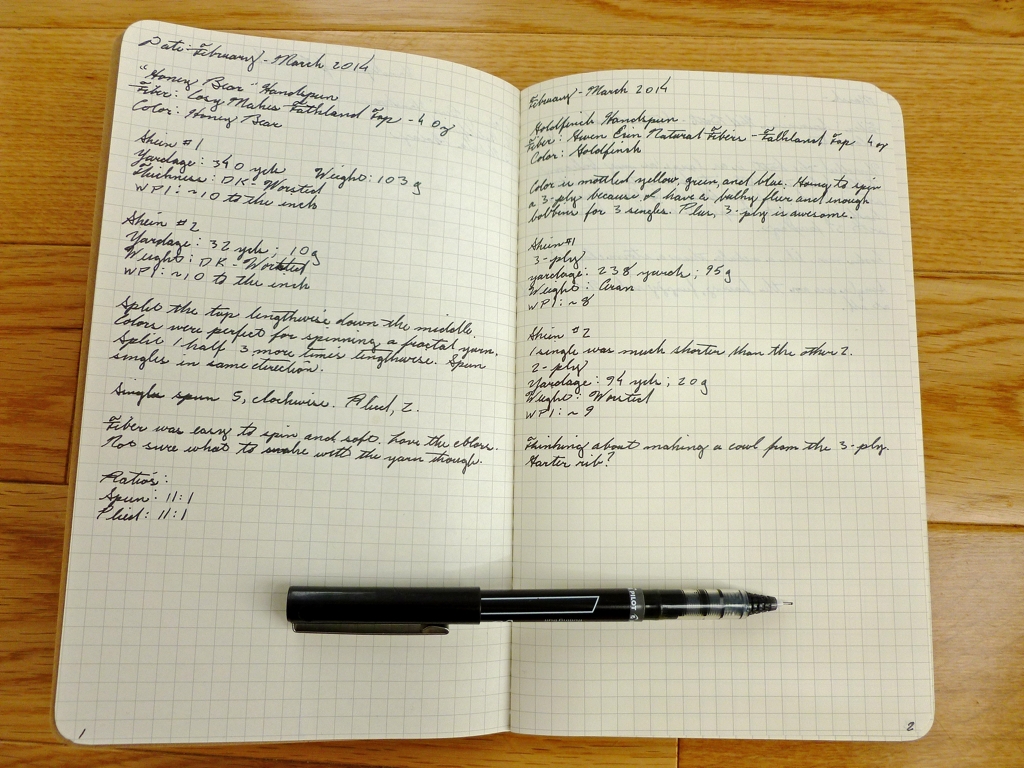 Date: February - March 2014
"Honey Bear" Handspun
Fiber: Cosy Makes Falkland Top - 4 oz
Color: Honey Bear
Skein #1
Yardage: 340 yds Weight: 103 g
Thickness: DK - Worsted
WPI: ~10 to the inch
Skein #2
Yardage: 32 yds; 10g
Weight: DK - Worsted
WPI: ~10 to the inch
Split the top lengthwise down the middle.
Colors were perfect for spinning a fractal yarn.
Split 1 half 3 more times lengthwise. Spun
singles in same direction.
Singles spun S, clockwise. Plied, Z.
Fiber was easy to spin and soft. Love the colors.
Not sure what to make with the yarn though.
Ratios:
Spun: 11:1
Plied: 11:1
1
February - March 2014
Goldfinch Handspun
Fiber: Gwen Erin Natural Fibers - Falkland Top 4 oz
Color: Goldfinch
Color is mottled yellow, green, and blue. Going to spin
a 3-ply because I have a bulky flier and enough
bobbins for 3 singles. Plus, 3-ply is awesome.
Skein #1
3-ply
yardage: 238 yards; 95g
Weight: Aran
WPI: ~8
Skein #2
1 single was much shorter than the other 2.
2-ply
Yardage: 94 yds; 20g
Weight: Worsted
WPI: ~9
Thinking about making a cowl from the 3-ply.
Garter rib?
2
PILOT